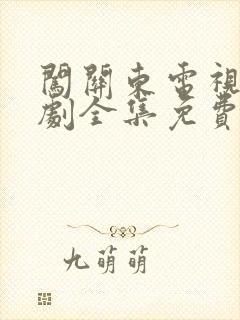 闖關東電視
劇全集免費
九萌萌